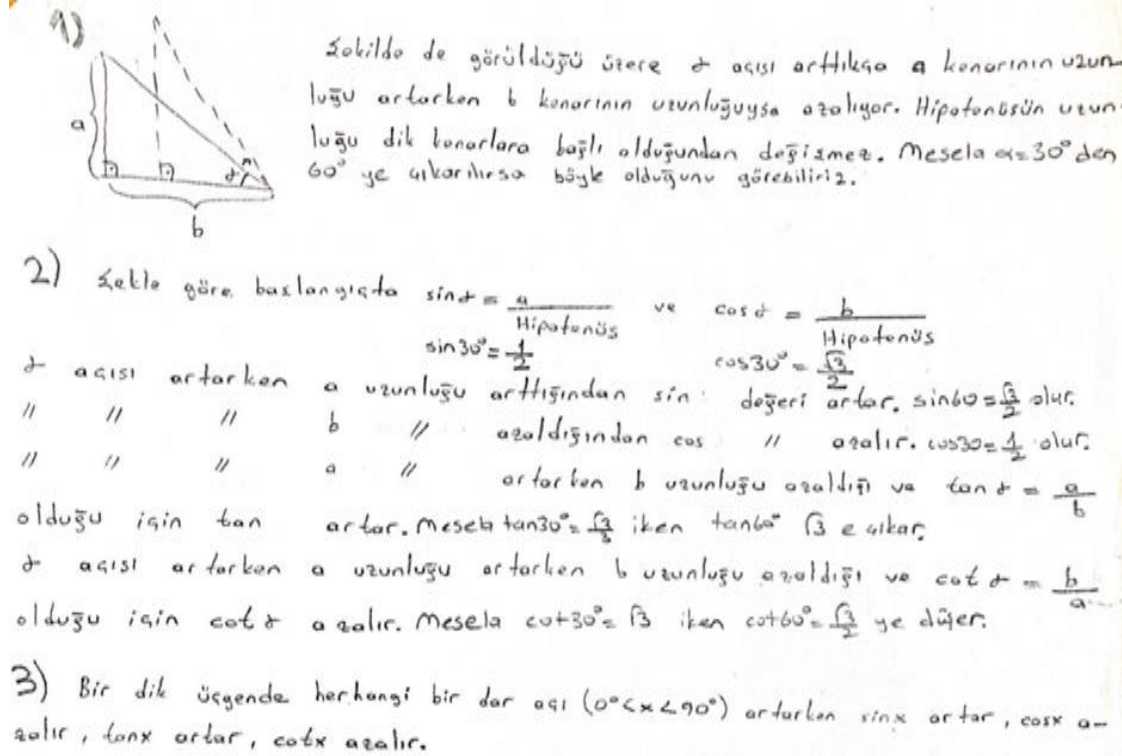 1)
a
α
b
Şekilde de görüldüğü üzere α açısı arttıkça a kenarının uzun-
luğu artarken b kenarının uzunluğuysa azalıyor. Hipotenüsün uzun-
luğu dik kenarlara bağlı olduğundan değişmez. Mesela α=30° den
60° ye çıkarılırsa böyle olduğunu görebiliriz.
2) Şekle göre başlangıçta sinα = a/Hipotenüs ve cosα = b/Hipotenüs
sin30°=1/2 cos30°=√3/2
α açısı artarken a uzunluğu arttığından sin değeri artar. sin60=√3/2 olur.
" " " b " azaldığından cos " azalır. cos30=1/2 olur.
" " " a " artarken b uzunluğu azaldığı ve tanα = a/b
olduğu için tan artar. Mesela tan30°=√3/3 iken tan60° √3 e çıkar.
α açısı artarken a uzunluğu artarken b uzunluğu azaldığı ve cotα = b/a
olduğu için cotα azalır. Mesela cot30°=√3 iken cot60°=√3/2 ye düşer.
3) Bir dik üçgende herhangi bir dar açı (0°<x<90°) artarken sinx artar, cosx a-
zalır, tanx artar, cotx azalır.